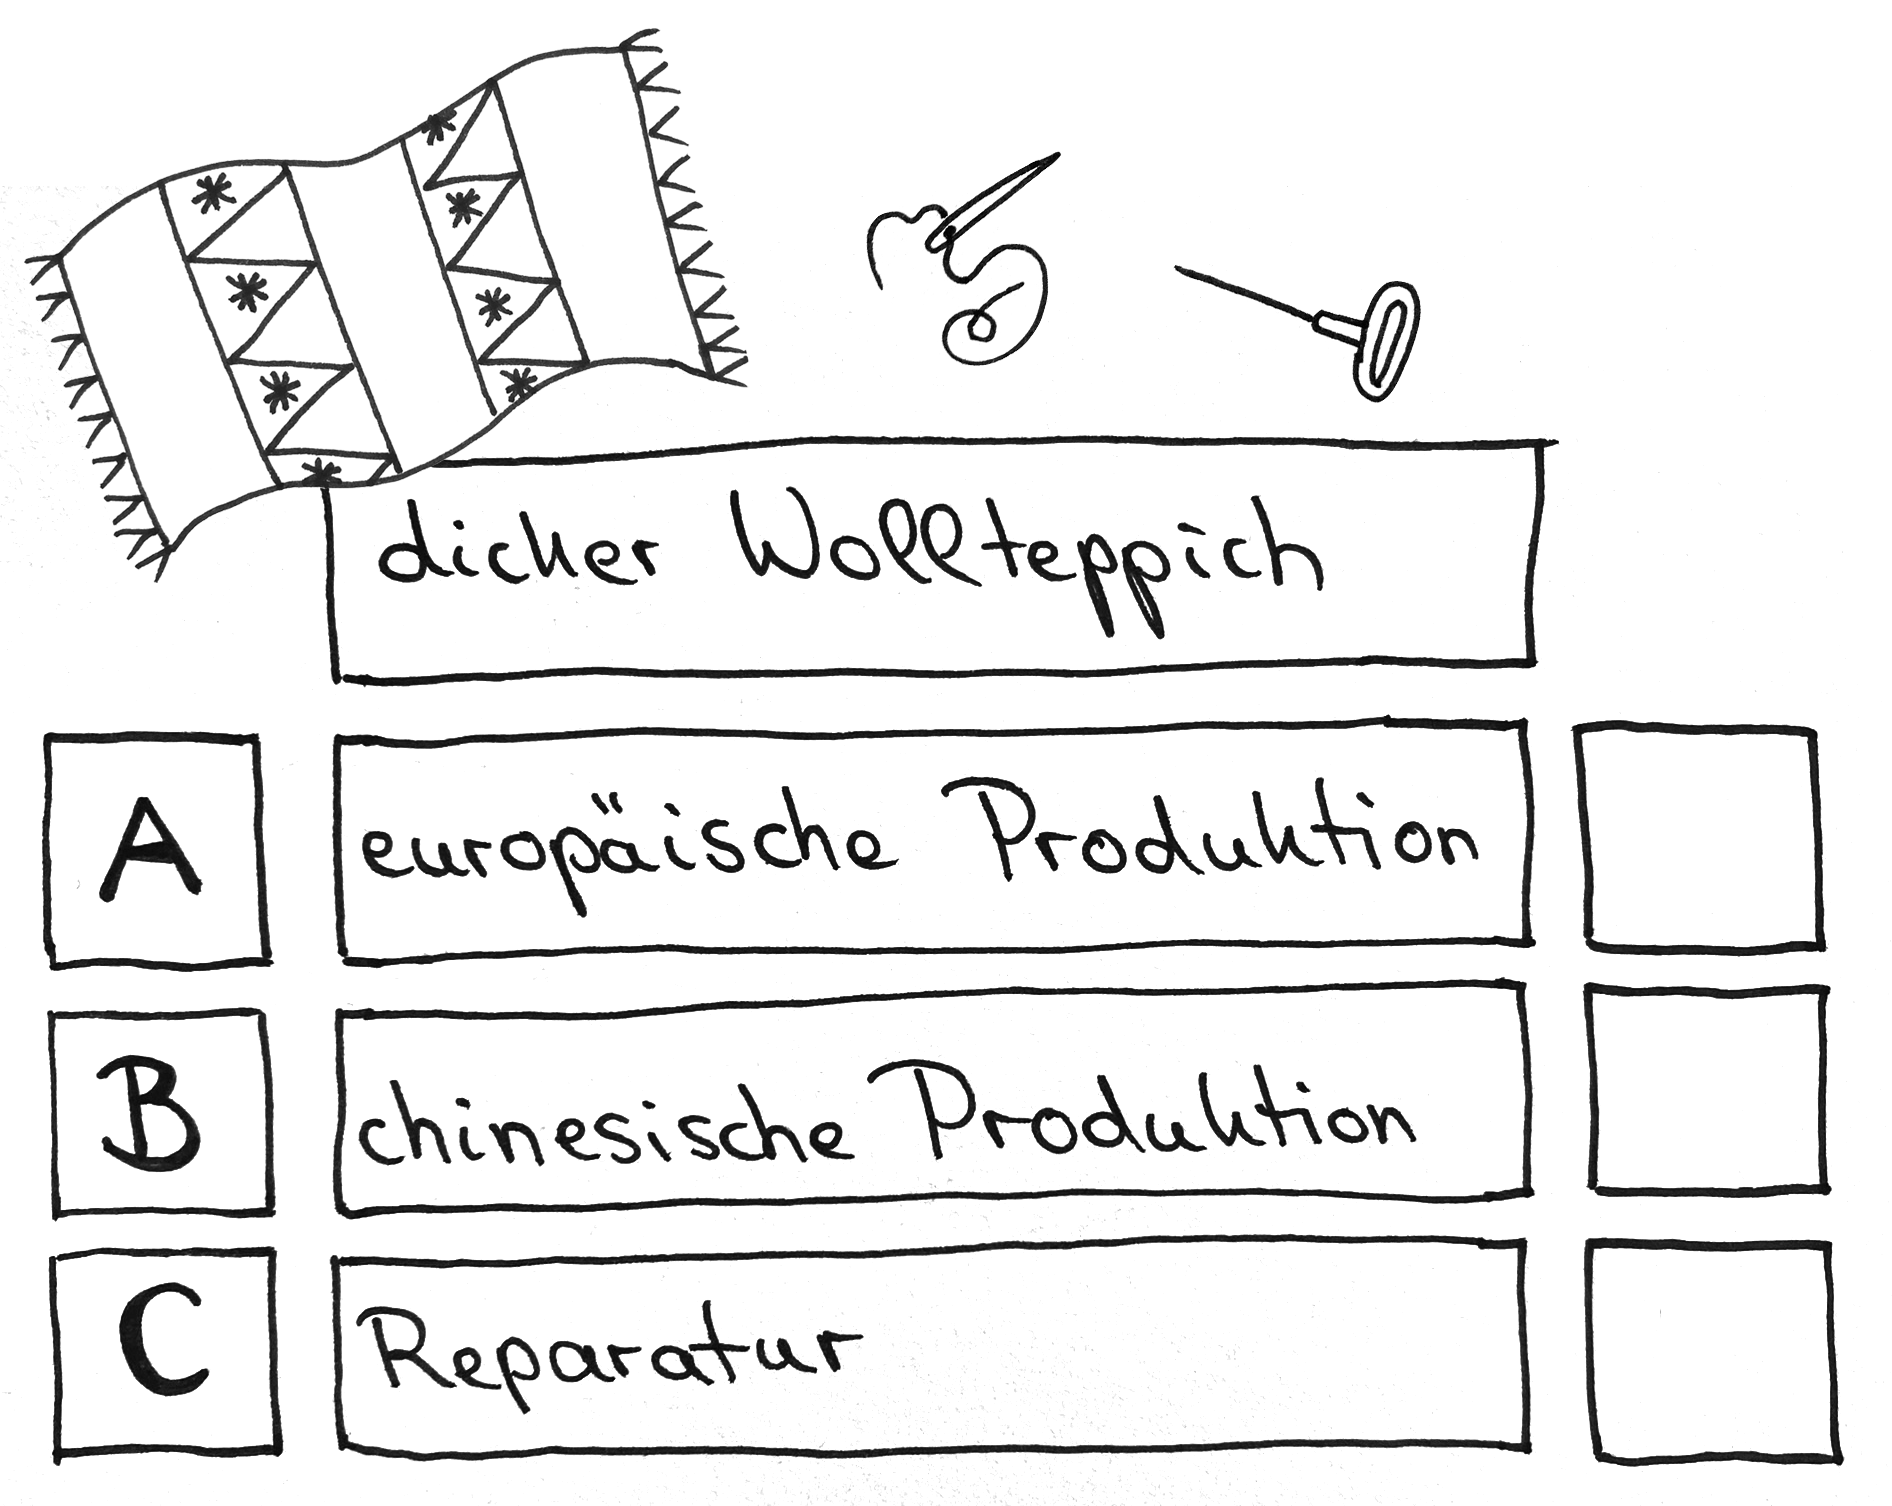 dicker Wollteppich
A
europäische Produktion
B
chinesische Produktion
C
Reparatur